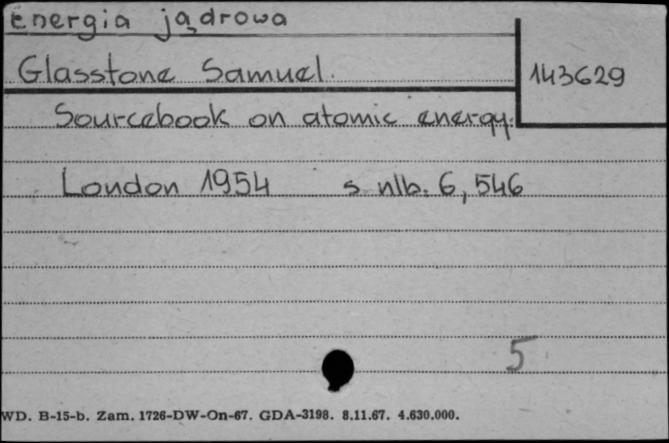 energia jądrowa
Glasstone Samuel.
143629
Sourcebook on atomic energy.
London 1954 s nlb. 6, 546
5
WD. B-15-b. Zam. 1726-DW-On-67. GDA-3198. 8.11.67. 4.630.000.